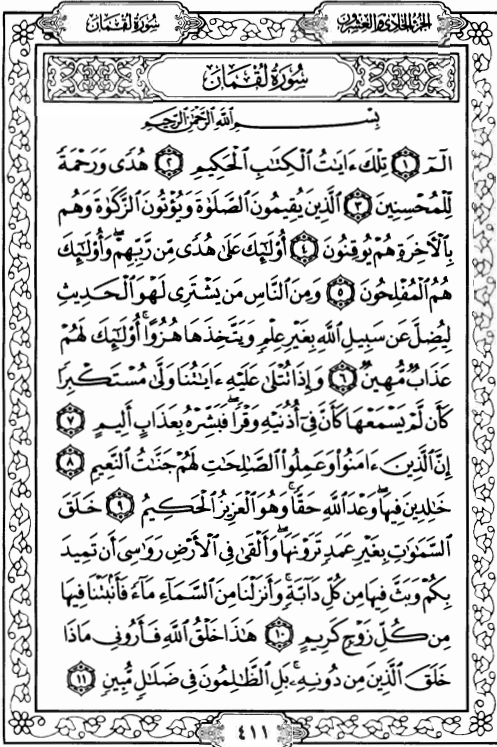 سُورَةُ لُقْمَان
الجُزْءُ الحَادِي وَالعِشْرُونَ
سُورَةُ لُقْمَان
بِسْمِ اللَّهِ الرَّحْمَٰنِ الرَّحِيمِ
الٓمٓ ١ تِلْكَ ءَايَٰتُ الْكِتَٰبِ الْحَكِيمِ ٢ هُدًى وَرَحْمَةً
لِّلْمُحْسِنِينَ ٣ الَّذِينَ يُقِيمُونَ الصَّلَوٰةَ وَيُؤْتُونَ الزَّكَوٰةَ وَهُم
بِالْءَاخِرَةِ هُمْ يُوقِنُونَ ٤ أُو۟لَٰٓئِكَ عَلَىٰ هُدًى مِّن رَّبِّهِمْ ۖ وَأُو۟لَٰٓئِكَ
هُمُ الْمُفْلِحُونَ ٥ وَمِنَ النَّاسِ مَن يَشْتَرِى لَهْوَ الْحَدِيثِ
لِيُضِلَّ عَن سَبِيلِ اللَّهِ بِغَيْرِ عِلْمٍ وَيَتَّخِذَهَا هُزُوًا ۚ أُو۟لَٰٓئِكَ لَهُمْ
عَذَابٌ مُّهِينٌ ٦ وَإِذَا تُتْلَىٰ عَلَيْهِ ءَايَٰتُنَا وَلَّىٰ مُسْتَكْبِرًا
كَأَن لَّمْ يَسْمَعْهَا كَأَنَّ فِىٓ أُذُنَيْهِ وَقْرًا ۖ فَبَشِّرْهُ بِعَذَابٍ أَلِيمٍ ٧
إِنَّ الَّذِينَ ءَامَنُوا۟ وَعَمِلُوا۟ الصَّٰلِحَٰتِ لَهُمْ جَنَّٰتُ النَّعِيمِ ٨
خَٰلِدِينَ فِيهَا ۖ وَعْدَ اللَّهِ حَقًّا ۚ وَهُوَ الْعَزِيزُ الْحَكِيمُ ٩ خَلَقَ
السَّمَٰوَٰتِ بِغَيْرِ عَمَدٍ تَرَوْنَهَا ۖ وَأَلْقَىٰ فِى الْأَرْضِ رَوَٰسِىَ أَن تَمِيدَ
بِكُمْ وَبَثَّ فِيهَا مِن كُلِّ دَآبَّةٍ ۚ وَأَنزَلْنَا مِنَ السَّمَآءِ مَآءً فَأَنۢبَتْنَا فِيهَا
مِن كُلِّ زَوْجٍ كَرِيمٍ ١٠ هَٰذَا خَلْقُ اللَّهِ فَأَرُونِى مَاذَا
خَلَقَ الَّذِينَ مِن دُونِهِۦ ۚ بَلِ الظَّٰلِمُونَ فِى ضَلَٰلٍ مُّبِينٍ ١١
٤١١